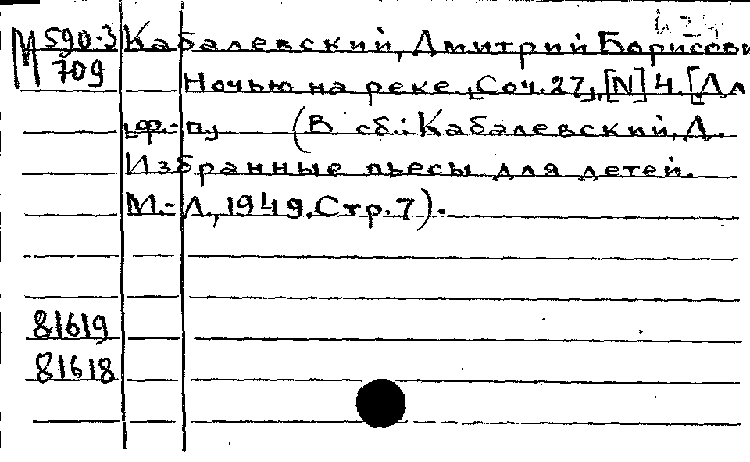 М 590-3 Кабалевский, Дмитрий Борисови
709 Ночью на реке. Соч. 27, [N] 4. [Дл
ф.-п. (В сб.: Кабалевский, Д.
Избранные пьесы для детей.
М.-Л., 1949. Стр. 7).
81619
81618